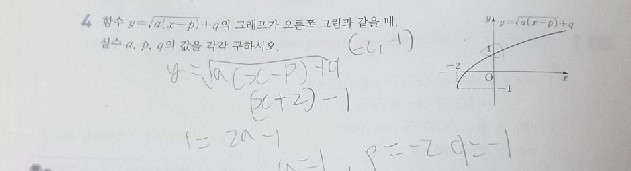 4 함수 y=√a(x-p)+q의 그래프가 오른쪽 그림과 같을 때,
실수 a, p, q의 값을 각각 구하시오.
(-2, -1)
y=√a(x-p)+q
(x+2)-1
1= 2a-1
a=1, p=-2 q=-1
y y=√a(x-p)+q
1
-2
O x
-1